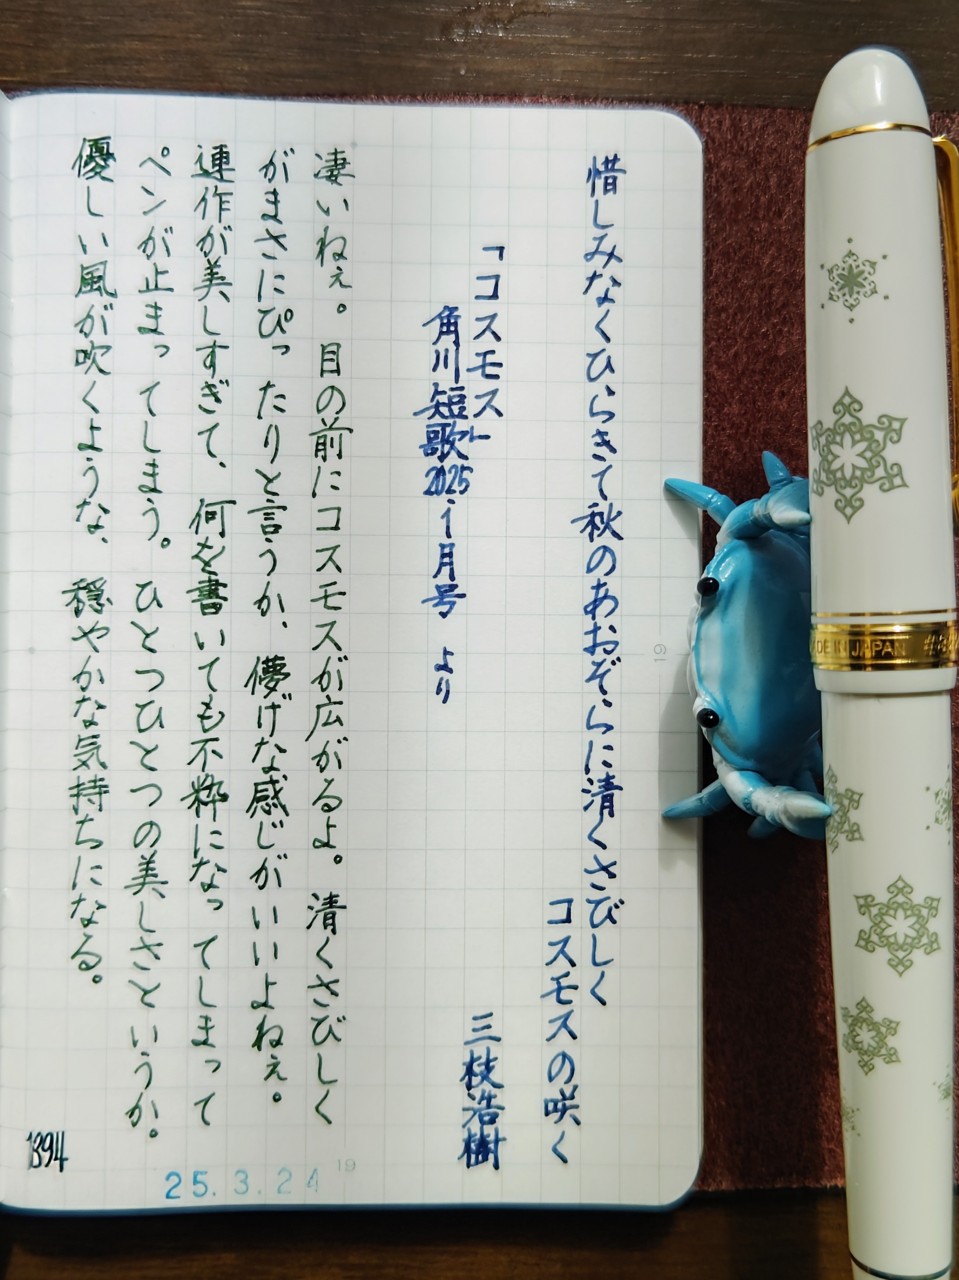 惜しみなくひらきて秋のあおぞらに清くさびしく
コスモスの咲く
三枝浩樹
「コスモス」
角川短歌2025.1月号 より
凄いねぇ。目の前にコスモスが広がるよ。清くさびしく
がまさにぴったりと言うか、儚げな感じがいいよねぇ。
連作が美しすぎて、何を書いても不粋になってしまって
ペンが止まってしまう。ひとつひとつの美しさというか。
優しい風が吹くような、穏やかな気持ちになる。
1394
25.3.24
19
19
MADE IN JAPAN